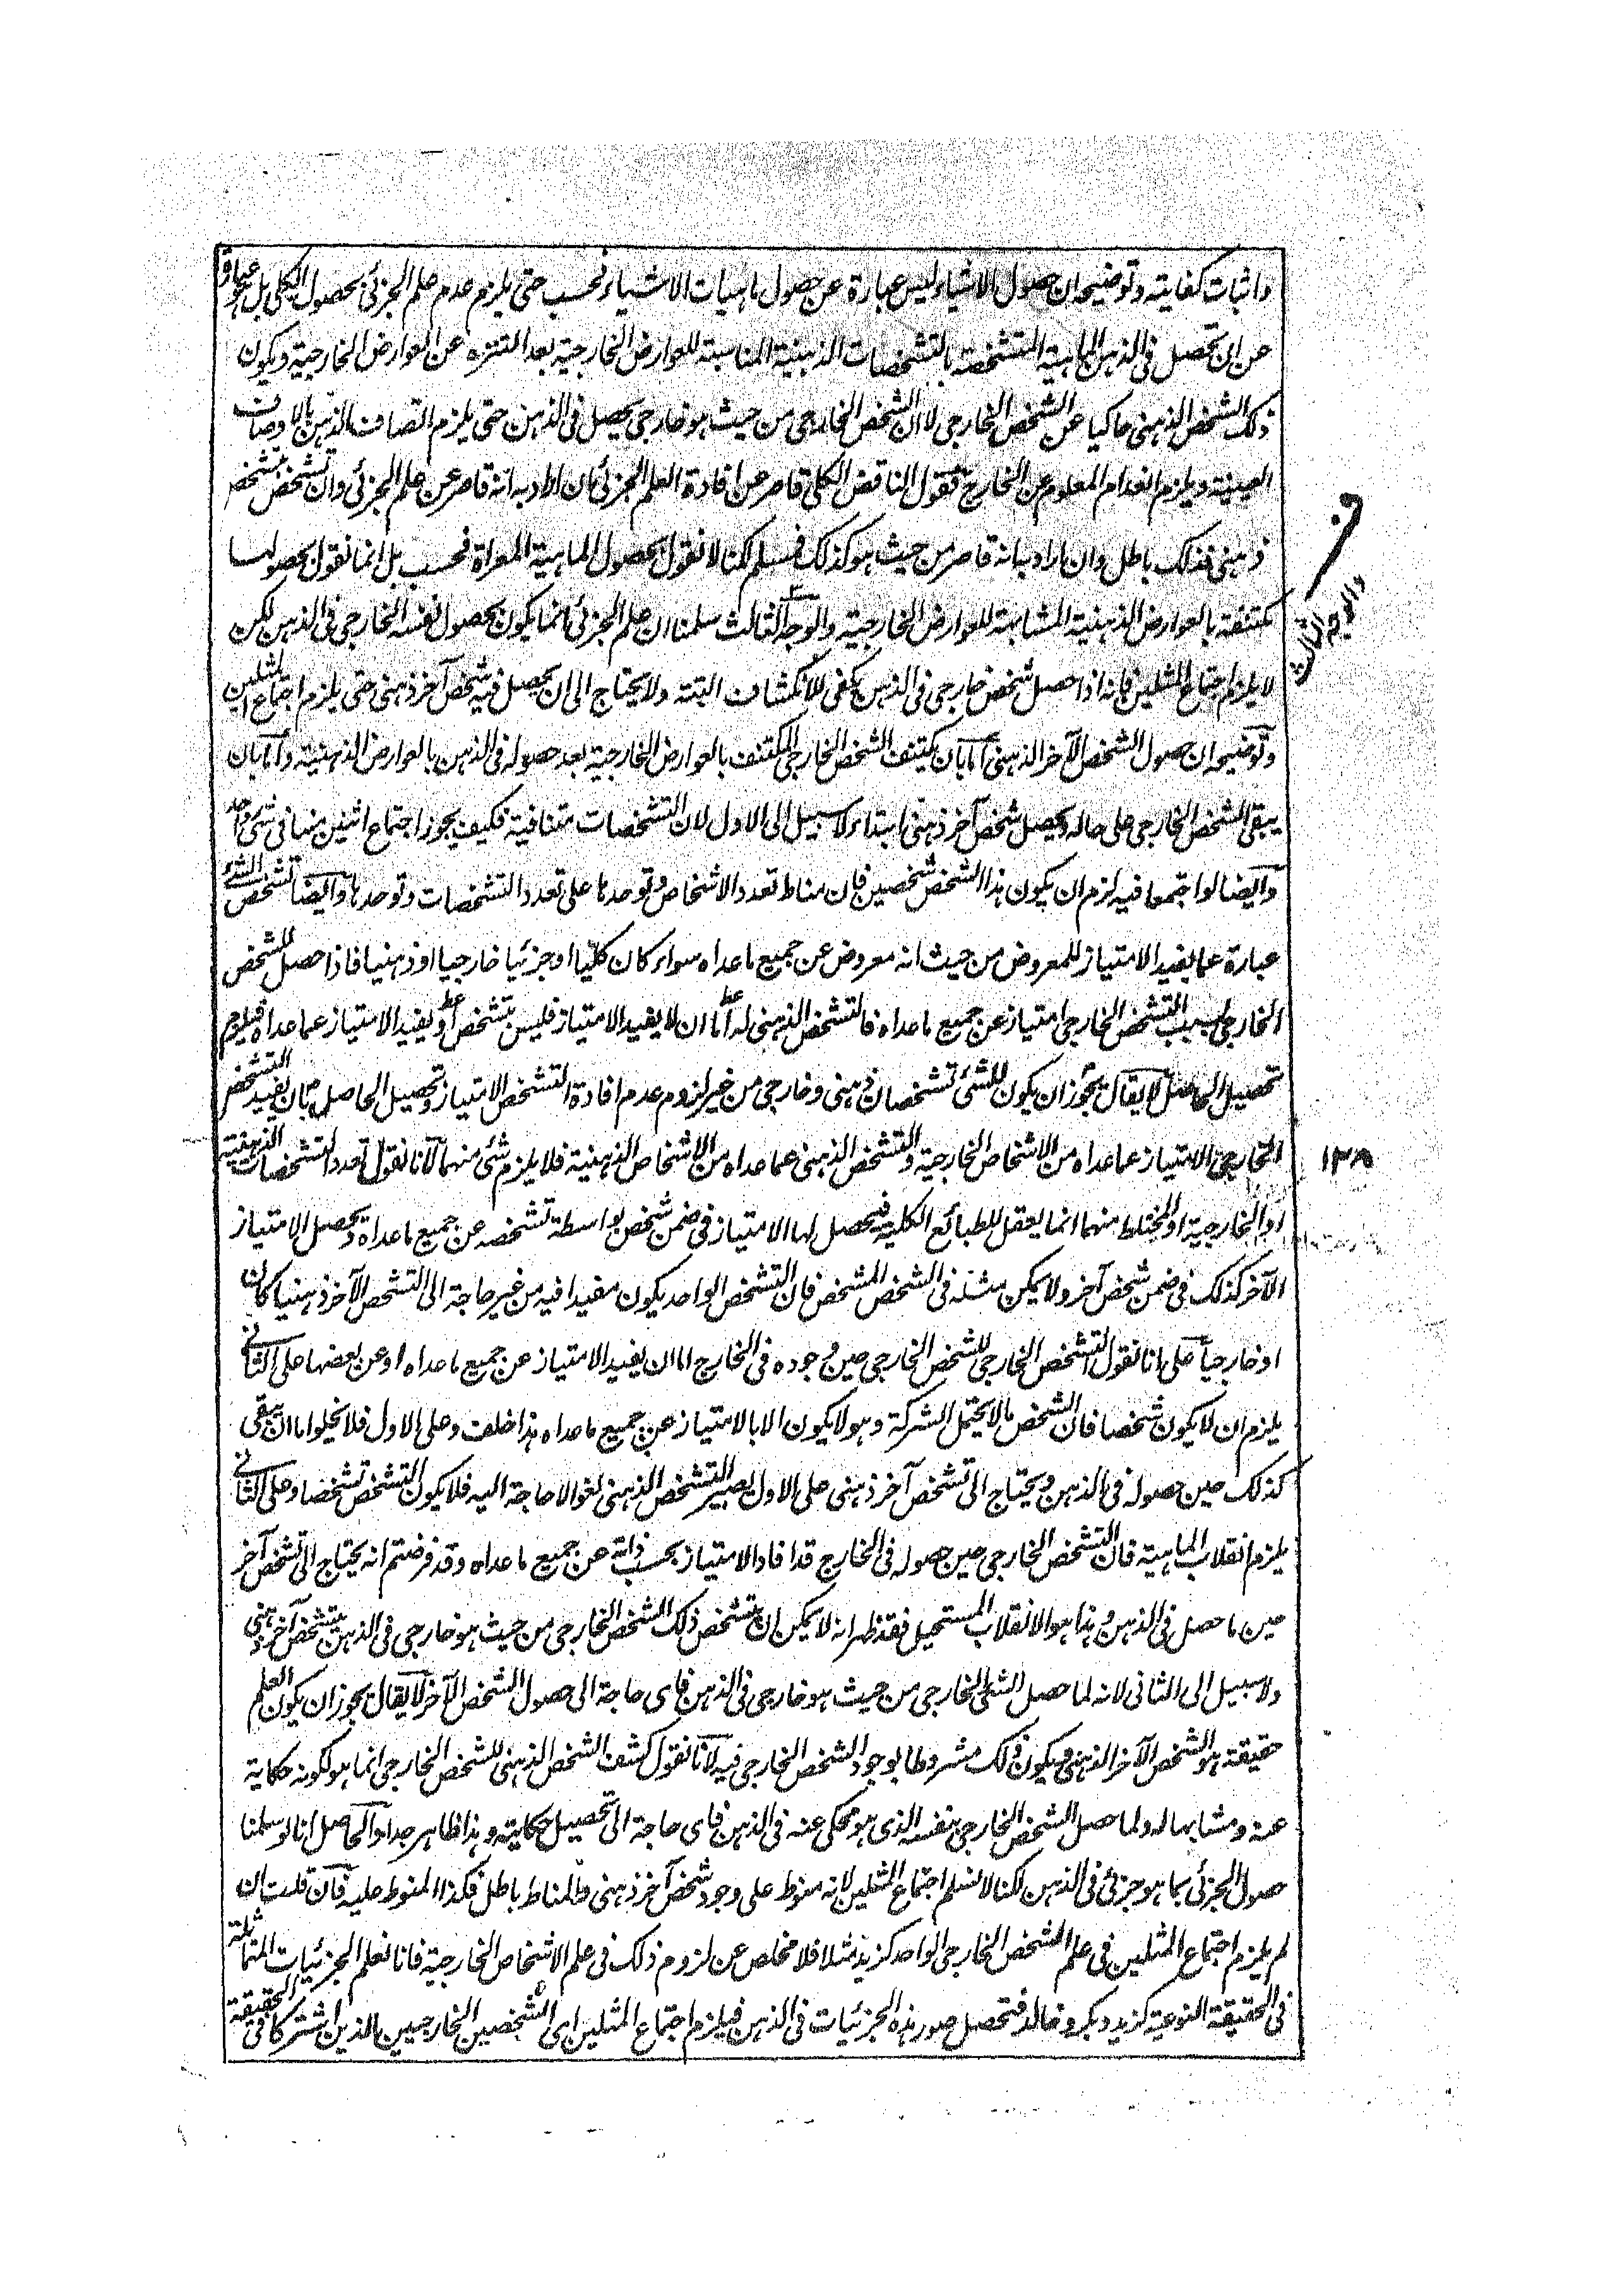 واثبات كفايته وتوضيحه ان حصول الاشياء ليس عبارة عن حصول ماهيات الاشياء فحسب حتى يلزم عدم علم الجزئى بحصول الكلى بل هو عبارة
عن ان تحصل فى الذهن الماهية المتشخصة بالتشخصات الذهنية المناسبة للعوارض الخارجية بعد التنزه عن العوارض الخارجية ويكون
ذلك الشخص الذهنى حاكيا عن الشخص الخارجى لا ان الشخص الخارجى من حيث هو خارجى يحصل فى الذهن حتى يلزم اتصاف الذهن بالاوصاف
العينية ويلزم انعدام المعلوم عن الخارج فقول الناقض الكلى قاصر عن افادة العلم الجزئى ان اراد به انه قاصر عن علم الجزئى وان تشخص بتشخص
ذهنى فذلك باطل وان اراد به انه قاصر من حيث هو كذلك فمسلم لكنا لا نقول بحصول الماهية المعراة فحسب بل انما نقول بحصولها
مكتنفة بالعوارض الذهنية المشابهة للعوارض الخارجية والوجه الثالث سلمنا ان علم الجزئى انما يكون بحصول نفسه الخارجى فى الذهن لكن
لا يلزم اجتماع المثلين فانه اذا حصل شخص خارجى فى الذهن يكفى للانكشاف البتة ولا يحتاج الى ان يحصل فيه شخص آخر ذهنى حتى يلزم اجتماع المثلين
وتوضيحه ان حصول الشخص الآخر الذهنى اما بان يكتنف الشخص الخارجى المكتنف بالعوارض الخارجية بعد حصوله فى الذهن بالعوارض الذهنية واما بان
يبقى الشخص الخارجى على حاله ويحصل شخص آخر ذهنى ابتداء لا سبيل الى الاول لان التشخصات متنافية فكيف يجوز اجتماع اثنين منها فى شئ واحد
وايضا لو اجتمعا فيه لزم ان يكون هذا الشخص شخصين فان مناط تعدد الاشخاص وتوحدها على تعدد التشخصات وتوحدها وايضا تشخص الشئ
عبارة عما يفيد الامتياز للمعروض من حيث انه معروض عن جميع ما عداه سواء كان كليا او جزئيا خارجيا او ذهنيا فاذا حصل للشخص
الخارجى بسبب التشخص الخارجى امتياز عن جميع ما عداه فالتشخص الذهنى له اما ان لا يفيد الامتياز فليس بتشخص او يفيد الامتياز عما عداه فيلزم
تحصيل الحاصل لا يقال يجوز ان يكون للشئ تشخصان ذهنى وخارجى من غير لزوم عدم افادة التشخص الامتياز وتحصيل الحاصل بان يفيد التشخص
الخارجى الامتياز عما عداه من الاشخاص الخارجية والتشخص الذهنى عما عداه من الاشخاص الذهنية فلا يلزم شئ منهما لانا نقول تعدد التشخصات الذهنية
او الخارجية او المختلط منهما انما يعقل للطبائع الكلية فيحصل لها الامتياز فى ضمن شخص بواسطة تشخصه عن جميع ما عداه ويحصل الامتياز
الآخر كذلك فى ضمن شخص آخر ولا يمكن مثله فى الشخص المشخص فان التشخص الواحد يكون مفيدا فيه من غير حاجة الى التشخص الآخر ذهنيا كان
او خارجيا على انا نقول التشخص الخارجى للشخص الخارجى حين وجوده فى الخارج اما ان يفيد الامتياز عن جميع ما عداه او عن بعضها على الثانى
يلزم ان لا يكون شخصا فان الشخص ما لا يحتمل الشركة وهو لا يكون الا بالامتياز عن جميع ما عداه هذا خلف وعلى الاول فلا يخلو اما ان يبقى
كذلك حين حصوله فى الذهن ويحتاج الى تشخص آخر ذهنى على الاول يصير التشخص الذهنى لغوا لا حاجة اليه فلا يكون التشخص تشخصا وعلى الثانى
يلزم انقلاب الماهية فان التشخص الخارجى حين حصوله فى الخارج قد افاد الامتياز بحسب ذاته عن جميع ما عداه وقد فرضتم انه يحتاج الى تشخص آخر
حين ما حصل فى الذهن وهذا هو الانقلاب المستحيل فقد ظهر انه لا يمكن ان يتشخص ذلك الشخص الخارجى من حيث هو خارجى فى الذهن بتشخص آخر ذهنى
ولا سبيل الى الثانى لانه لما حصل الشئ الخارجى من حيث هو خارجى فى الذهن فاى حاجة الى حصول الشخص الآخر لا يقال يجوز ان يكون العلم
حقيقة هو الشخص الآخر الذهنى ويكون ذلك مشروطا بوجود الشخص الخارجى فيه لانا نقول كشف الشخص الذهنى للشخص الخارجى انما هو لكونه حكاية
عنه ومشابها له ولما حصل الشخص الخارجى بنفسه الذى هو محكى عنه فى الذهن فاى حاجة الى تحصيل حكايته وهذا ظاهر جدا والحاصل انا لو سلمنا
حصول الجزئى بما هو جزئى فى الذهن لكنا لا نسلم اجتماع المثلين لانه منوط على وجود شخص آخر ذهنى والمناط باطل فكذا المنوط عليه فان قلت ان
لم يلزم اجتماع المثلين فى علم الشخص الخارجى الواحد كزيد مثلا فلا مخلص عن لزوم ذلك فى علم الاشخاص الخارجية فانا نعلم الجزئيات المتماثلة
فى الحقيقة النوعية كزيد وبكر وخالد فتحصل صور هذه الجزئيات فى الذهن فيلزم اجتماع المثلين اى الشخصين الخارجيين الذين اشتركا فى الحقيقة
والوجه الثالث
١٣٨